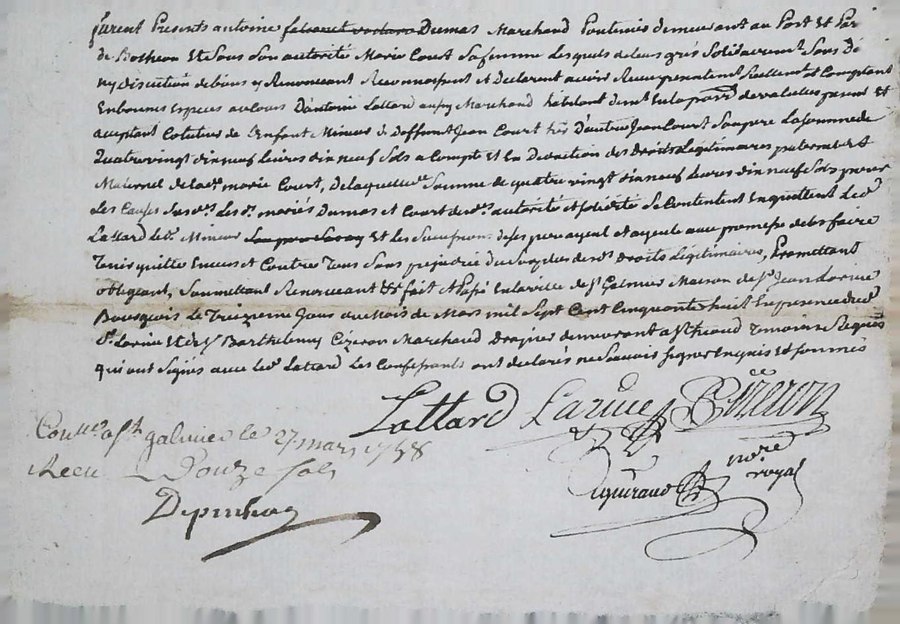 furent Presents antoine Dumas Marchand demeurant au Port et Par
de Botheon Et Sous Son autorité Marie Court Sa femme Lesquels de leur gré Solidairemt Sans Di
ny discution de biens y Renonceant Reconnoissent et Declarent avoir Receu presentement Reellement et Comptant
En bonnes Especes au Cours D'antoine Lattard Marchand habitant en la parr. de present Et
aceptant Cotuteur de L'Enfant Mineur de deffunt Jean Court D'autre Jean Court Son pere La Somme de
Quatre vingt dix neuf Livres dix neuf Sols a Compte Et En Deduction des Droits Legitimaires paternel Et
Maternel de lade. marie Court, De laquelle de. Somme de quatre vingt dix neuf Livres dix neuf Sols pour
Les Causes Susdes. Les ds. mariés Dumas et Court de ds. autorité et Se Contentent En quittent Led.
Lattard Led. Mineur Et les de Ses pere ayeul et ayeule aux promesse de les faire
Tenir quitte Envers et Contre Tous Sans prejudice du Surplus des ds. Droits Legitimaires, Promettant
obligeant, Soumettant Renonceant &c. fait et Passé En la ville de St. Galmier Maison de Sr. Jean Larive
Bourgeois Le Treizieme Jour du Mois de Mars mil Sept Cent Cinquante huit En presence dud.
Sr. Larive Et de Sr. Barthelemy Cizeron Marchand Drapier demeurant a St. Temoins Requis
qui ont Signés avec led. Lattard Les Confessants ont declarés ne Savoir Signer Enquis Et Sommés
Lattard Larive Cizeron
Conlle. a St. galmier le 27 mars 1758
Receu Douze Sols
nore.
royal